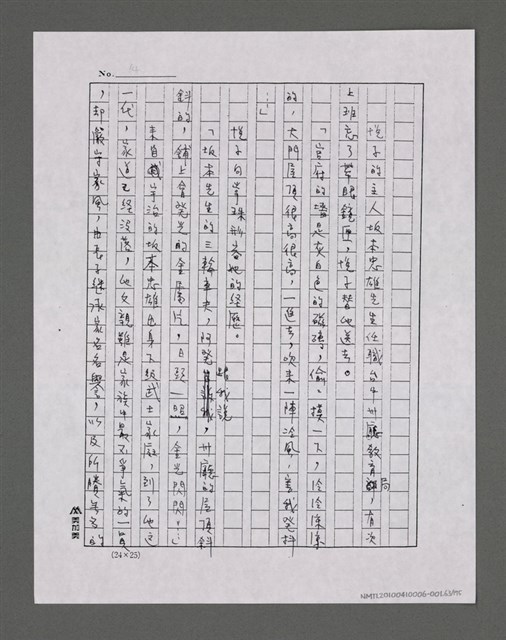 No.
悅子的主人坂本忠雄先生任職台中州廳教育局,有次
上班忘了帶眼鏡匣,悅子替他送去。
「官府的牆是灰白色的磁磚,偷偷摸一下,冷冷涼涼
的,大門屋頂很高很高,一進去,吹來一陣冷風,害我發抖
⋯⋯」
悅子向常珠形容她的經歷。
「坂本先生的三輪車夫,阿發跟我說,州廳的屋頂斜
斜的,鋪上會發光的金屬片,日頭一照,金光閃閃,⋯」
來自宇治的坂本忠雄出身下級武士家庭,到了他這
一代,家道已經沒落,他父親雖是家族中最不爭氣的一員
,卻嚴守家風,由長子繼承家名名譽,以及所賸無多的
(24×25)
NMTL20100410006-00163/175